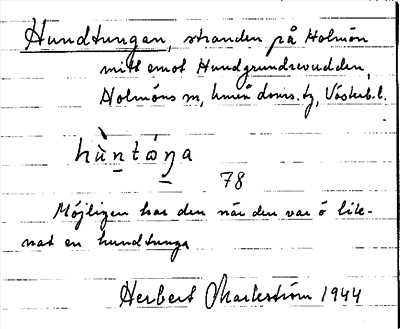 Hundtungan, stranden på Holmön
mitt emot Hundgrundsrevudden,
Holmöns sn, Umeå doms.tg, Västerb.l.
hùn̠tóŋ̠a
78
Möjligen har den när den var ö lik-
nat en hundtunga
Herbert Markström 1944